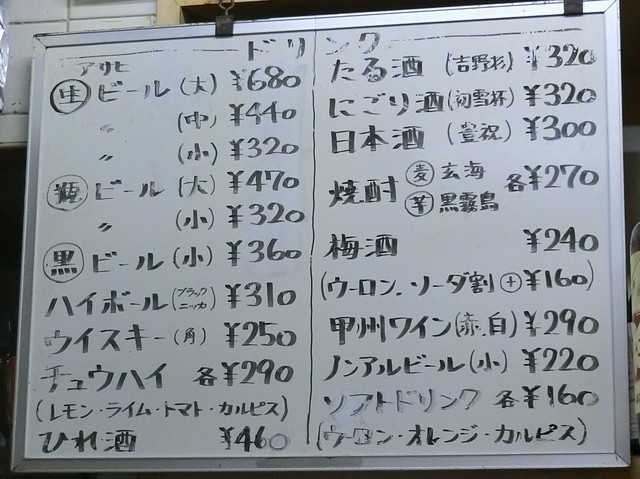 ドリンク
アサヒ
生 ビール (大) ¥680
〃 (中) ¥440
〃 (小) ¥320
瓶 ビール (大) ¥470
〃 (小) ¥320
黒 ビール (小) ¥360
ハイボール (ブラックニッカ) ¥310
ウイスキー (角) ¥250
チュウハイ 各¥290
(レモン・ライム・トマト・カルピス)
ひれ酒 ¥460
たる酒 (吉野杉) ¥320
にごり酒 (初雪杯) ¥320
日本酒 (豊祝) ¥300
焼酎 麦 玄海 各¥270
芋 黒霧島
梅酒 ¥240
(ウーロン.ソーダ割 + ¥160)
甲州ワイン(赤.白) ¥290
ノンアルビール(小) ¥220
ソフトドリンク 各¥160
(ウーロン・オレンジ・カルピス)